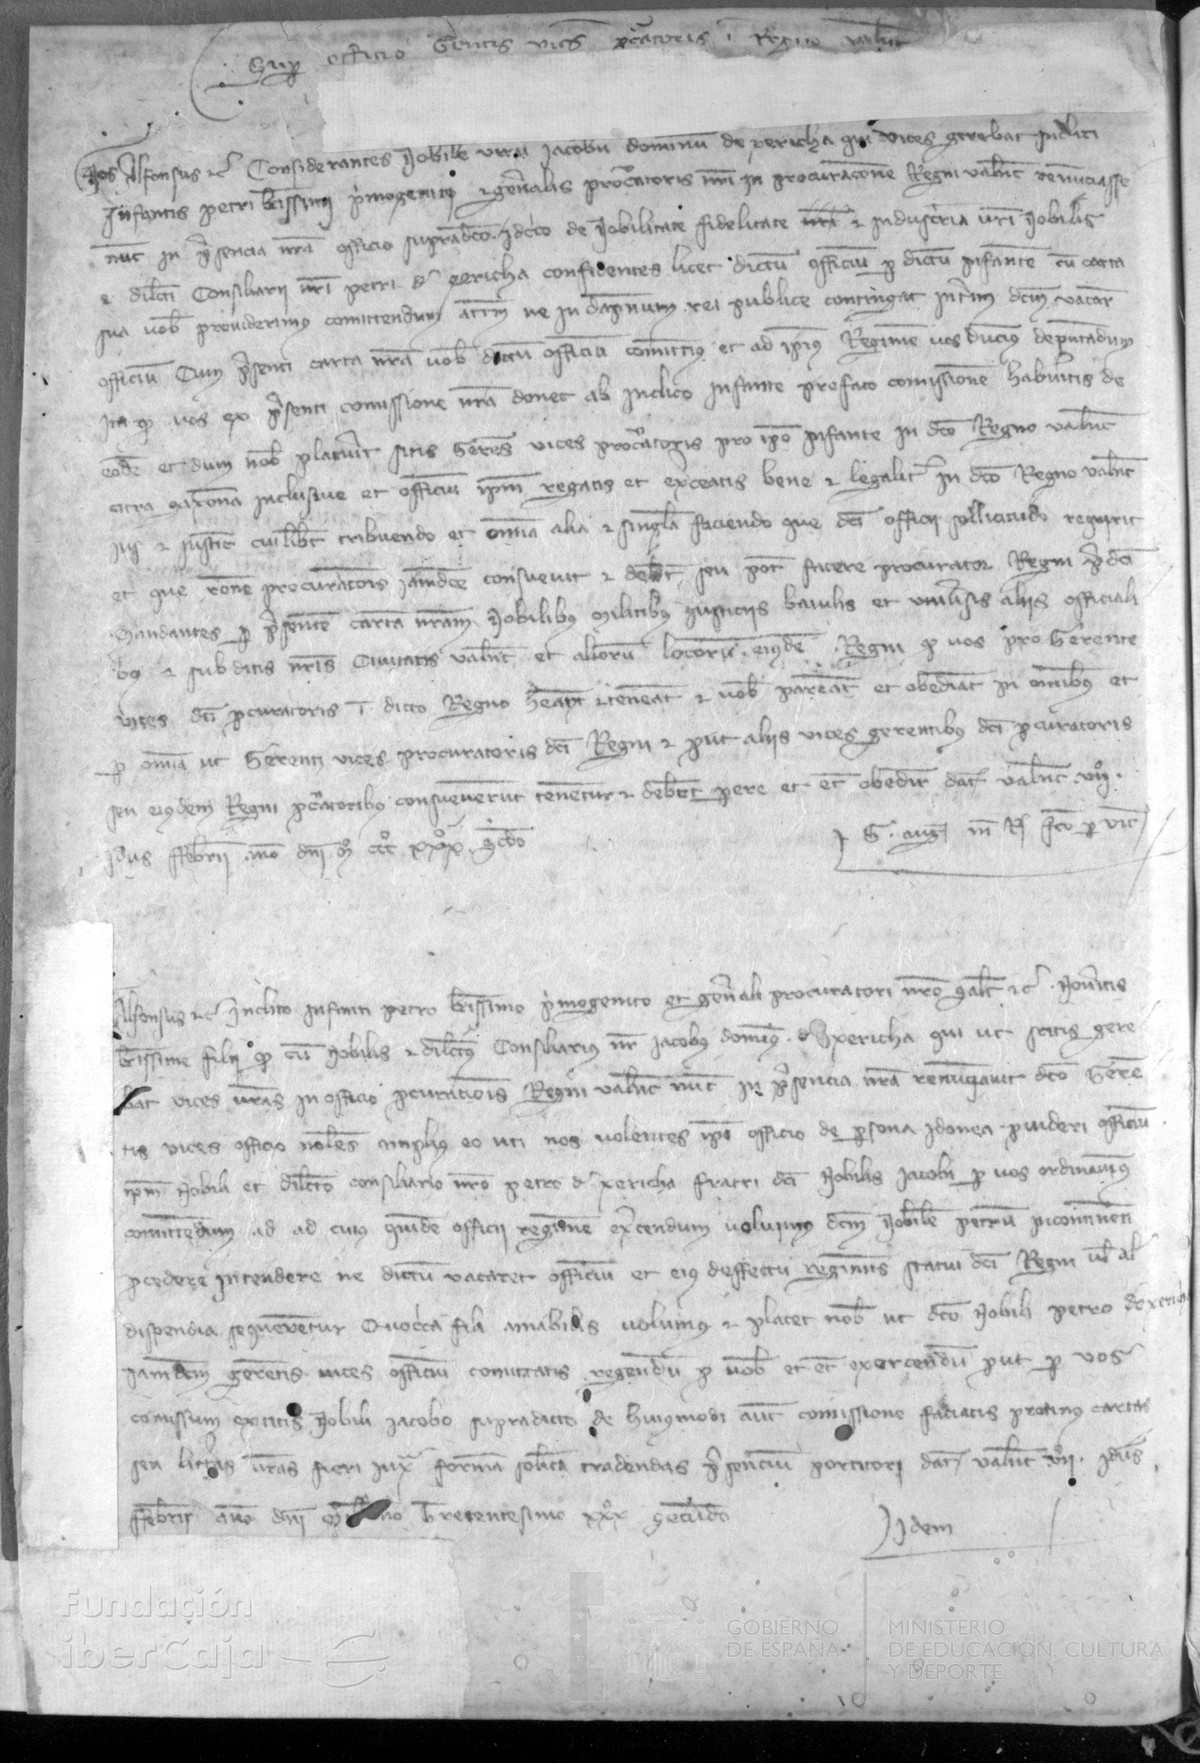 Sup officio Gerentis vices procuratoris i Regno Valenc
Nos Alfonsus etc Considerantes Nobile virum Jacobum dominum de xericha qui vices gerebat Incliti
Infantis petri kissimi primogeniti et generalis procuratoris nostri in procuracione Regni valenc renunciasse
nunc in presencia nostra officio supradicto. Idcirco de Nobilitate fidelitate et industria vestri Nobilis
et dilecti Consiliarii nostri petri de xericha confidentes licet dictum officium per dictum infantem cum carta
sua vobis providerimus comittendum attamen ne in dapnum rei publice contingat interim dictum vacare
officium Cum presenti carta nostra vobis dictum officium comittimus et ad ipsius Regimen vos ducimus deputandum
Ita quod vos ex presenti comissione nostra donec ab Inclito Infante prefato comissionem habueritis de
eodem et dum nobis placuerit sitis Gerens vices procuratoris pro ipso infante in dicto Regno valenc
citra Sexonam inclusive et officium ipsum regatis et exerceatis bene et legaliter in dicto Regno valenc
ius et iusticiam cuilibet tribuendo et omnia alia et singula faciendo que dicti officii sollicitudo requirit
et que racione procuracionis iamdicte consuevit et debet seu potest facere procurator Regni predicti
Mandantes per presentem cartam nostram Nobilibus militibus Iusticiis baiulis et universis aliis officiali
bus et subditis nostris Civitatis valenc et aliorum locorum eiusdem Regni quod vos pro Gerente
vices dicti procuratoris i dicto Regno habeant et teneant et vobis pareant et obediant in omnibus et
per omnia ut Gerenti vices procuratoris dicti Regni et prout aliis vices gerentibus dicti procuratoris
seu eiusdem Regni procuratoribus consueverunt tenentur et debent parere et etiam obedire dat valenc vii
idus Febrii anno dni M CCC xxx secundo
G. aug m R fco p vic
Alfonsus etc Inclito Infanti petro karissimo primogenito et generali procuratori nostro salt etc Noveritis
karissime fili quod cum Nobilis et dilectus Consiliarius noster Jacobus dominus de Exericha qui ut scitis gere
bat vices vestras in officio procuracionis Regni valenc nunc in presencia nostra renunciavit dicto Geren
tis vices officio nolens amplius eo uti nos volentes ipsi officio de persona idonea provideri officium
ipsum Nobili et dilecto consiliario nostro petro de xericha fratri dicti Nobilis Jacobi per vos ordinavimus
comittendum ad ad cuius quidem officii regimine exercendum volumus dictum Nobilem petrum incontinenti
procedere intendere ne dictum vacaret officium et eius deffectu regiminis statui dicti Regni vel al
dispendia sequerentur Quocirca fili amabilis volumus et placet nobis ut dicto Nobili petro de xericha
iamdictum gerentis vices officium comittatis regendum per vobis et etiam exercendum prout per vos
comissum extitit Nobili Jacobo supradicto de huiusmodi autem comissione faciatis protinus cartas
seu litteras vestras fieri iuxta formam solitam tradendas presencium portitori dat valenc vii idus
Febrii anno dni Millesimo Trecentesimo xxx secundo
Idem
Fundación
iberCaja
GOBIERNO
DE ESPAÑA
MINISTERIO
DE EDUCACIÓN, CULTURA
Y DEPORTE